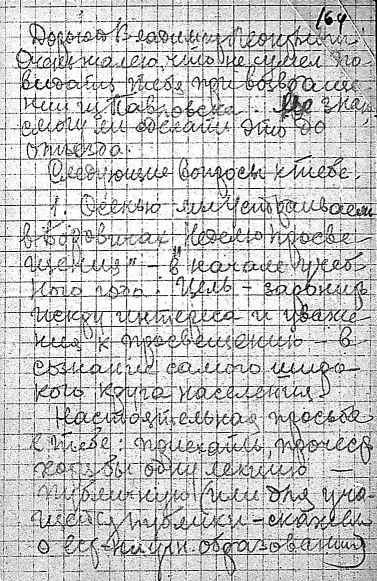 164
Дорогой Владимир Леонтьевич
Очень жалею, что не сумел по-
видать тебя при возвраще-
нии из Павловска. Не знаю,
смогу ли сделать это до
отъезда.
Следующие вопросы к тебе.
1. Осенью мы устраиваем
в Боровичах „Неделю просве-
щения" – в начале учеб-
ного года. Цель – заронить
искру интереса и уваже-
ния к просвещению – в
сознание самого широ-
кого круга населения.
Настоятельная просьба
к тебе: приехать, прочесть
хотя бы одну лекцию –
публичную (или для уча-
щейся публики – скажем
о ест-научн. образовании)